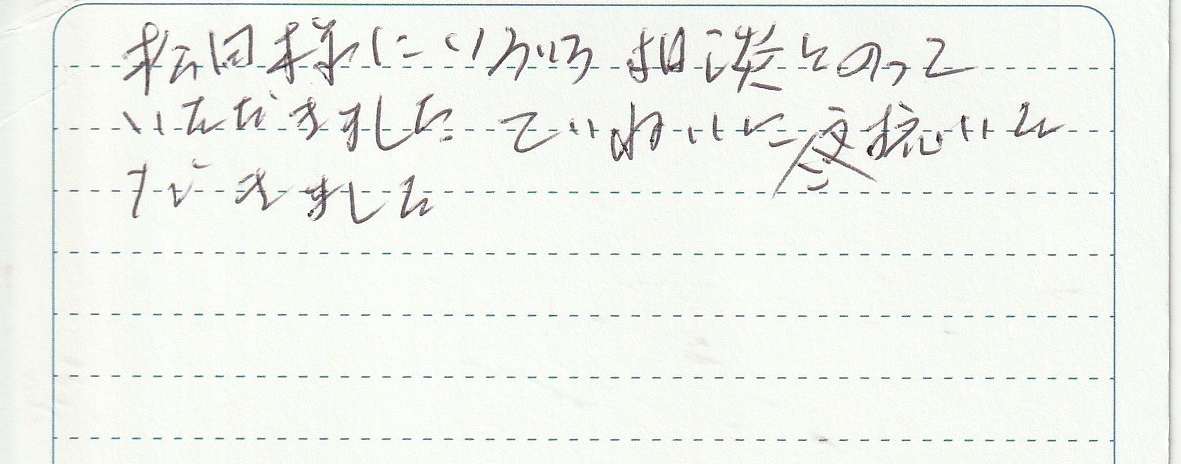 松田様にいろいろ相談とのって
いただきました ていねいに いた
だきました